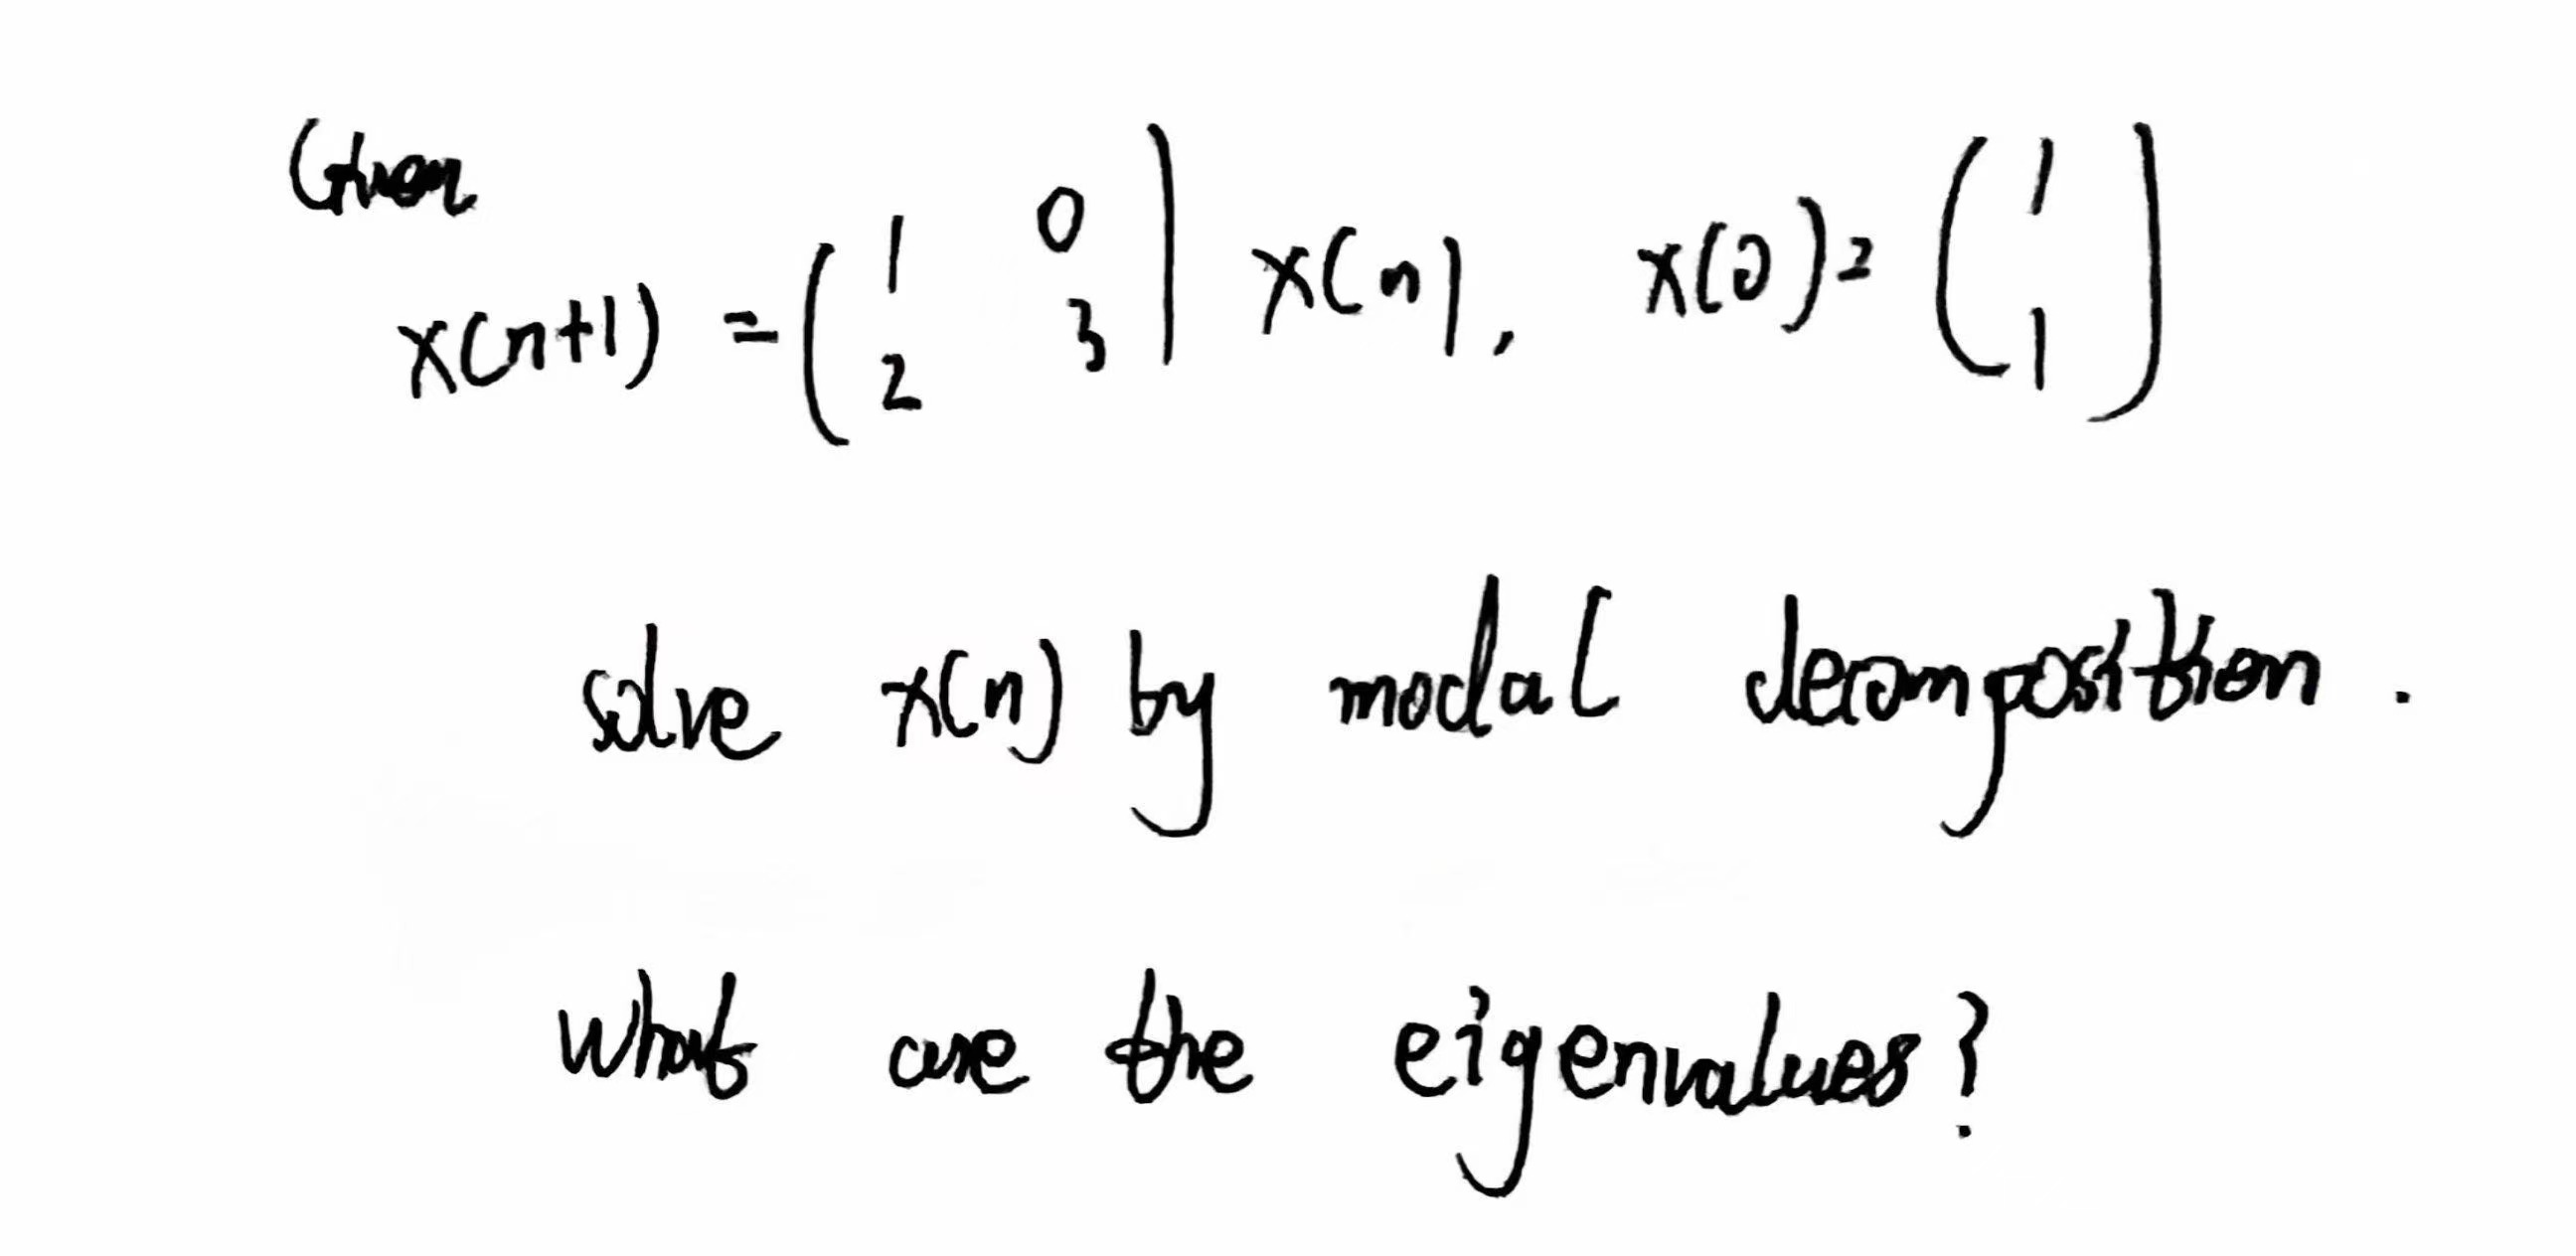 Given
x(n+1) = ( 1 0 ) x(n), x(0) = ( 1 )
2 3 1
solve x(n) by modal decomposition.
What are the eigenvalues?